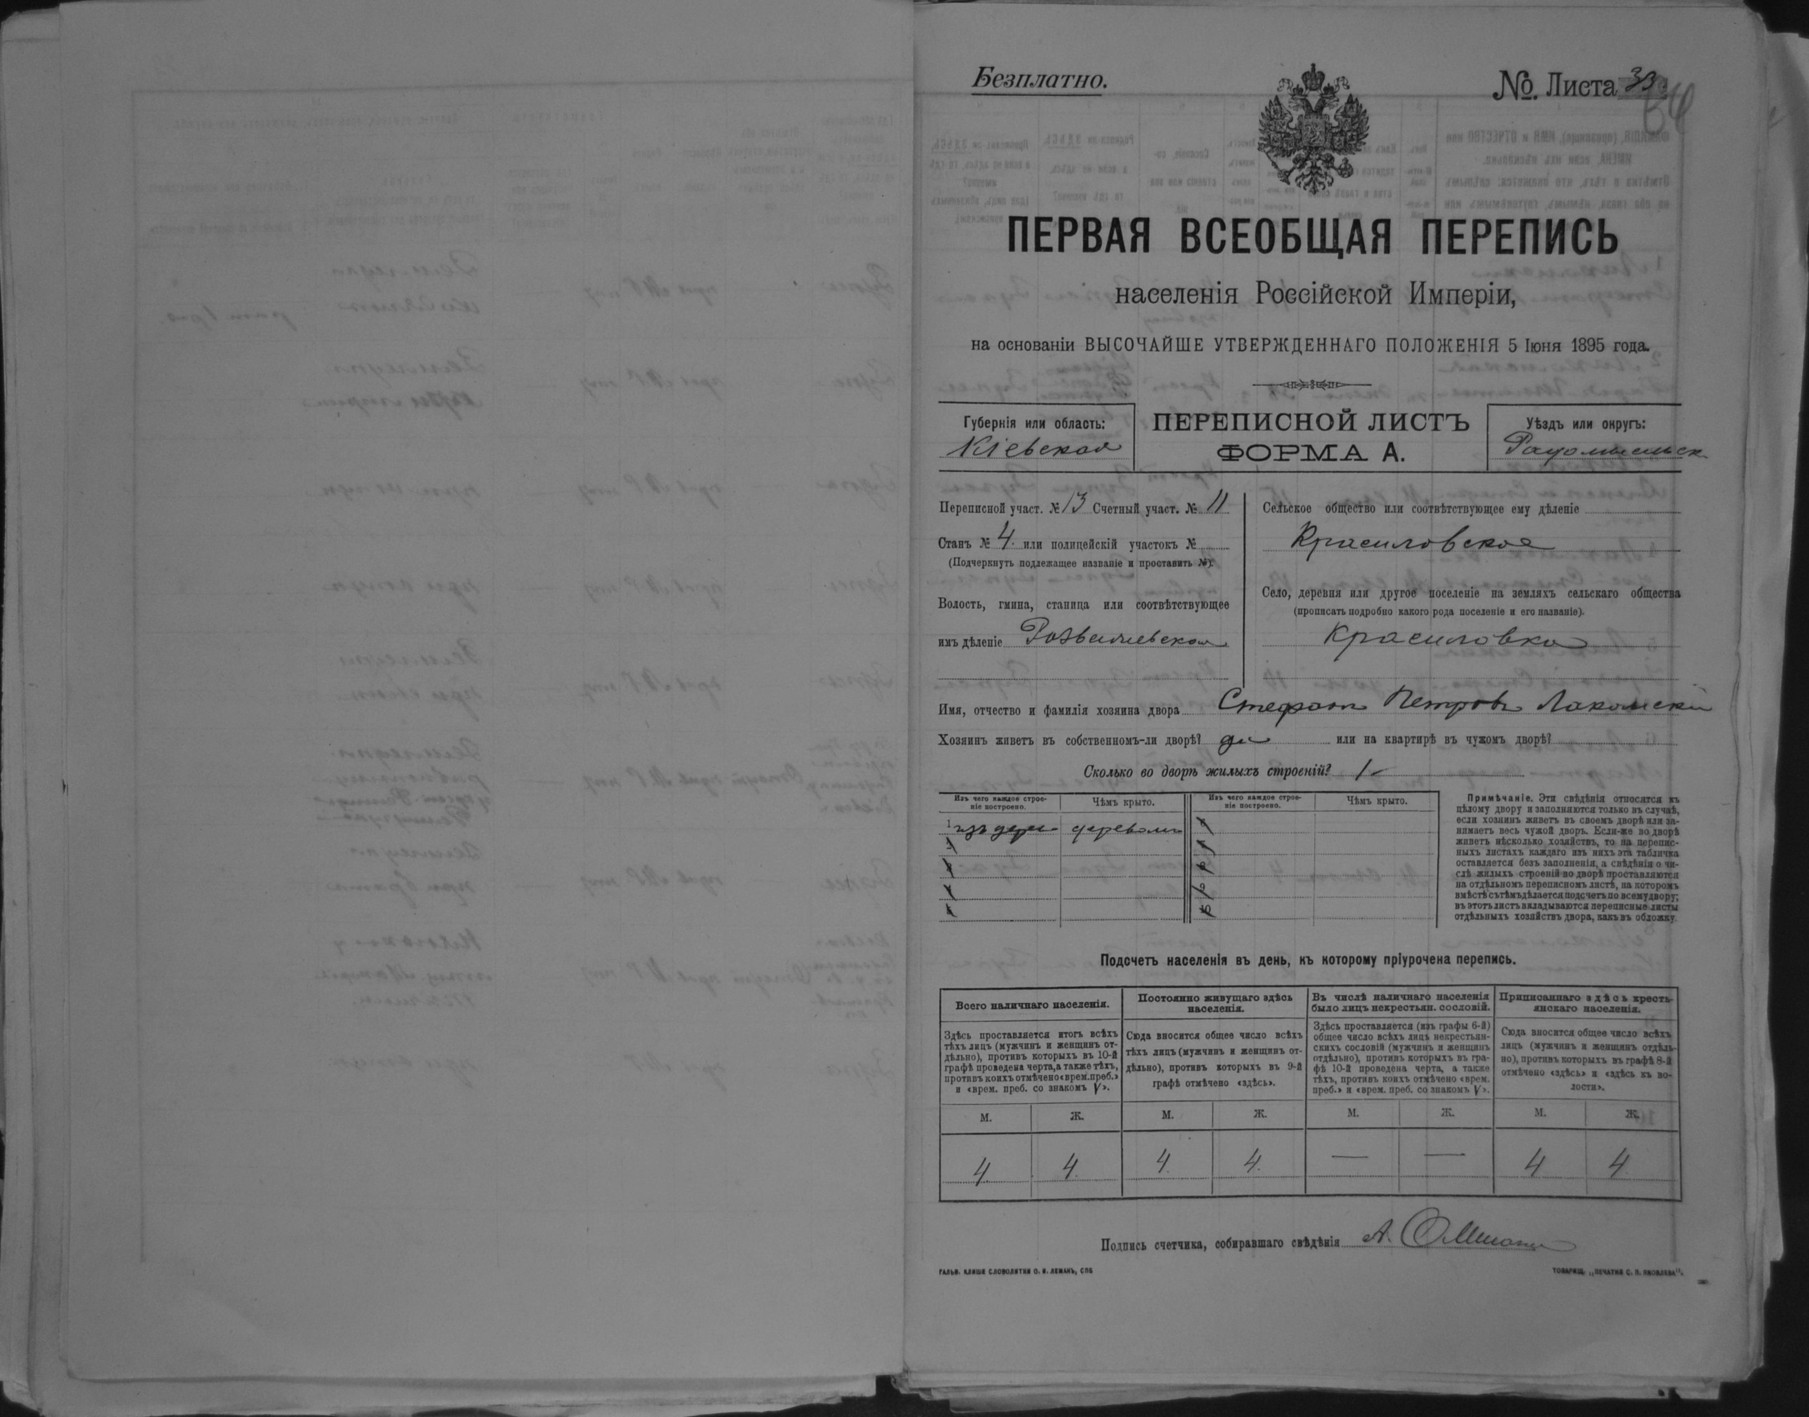 Безплатно.
№. Листа 33
ПЕРВАЯ ВСЕОБЩАЯ ПЕРЕПИСЬ
населенія Россійской Имперіи,
на основаніи ВЫСОЧАЙШЕ УТВЕРЖДЕННАГО ПОЛОЖЕНІЯ 5 Іюня 1895 года.
Губернія или область:
Кіевская
ПЕРЕПИСНОЙ ЛИСТЪ
ФОРМА А.
Уѣздъ или округъ:
Радомысльск
Переписной участ. № 13 Счетный участ. № 11
Станъ № 4 или полицейскій участокъ №
(Подчеркнуть подлежащее названіе и проставить №).
Волость, гмина, станица или соотвѣтствующее
имъ дѣленіе Розважевская
Сельское общество или соотвѣтствующее ему дѣленіе
Красиловское
Село, деревня или другое поселеніе на земляхъ сельскаго общества
(прописать подробно какого рода поселеніе и его названіе).
Красиловка
Имя, отчество и фамилія хозяина двора Стефанъ Петровъ Лакомскій
Хозяинъ живетъ въ собственномъ-ли дворѣ? да или на квартирѣ въ чужомъ дворѣ?
Сколько во дворѣ жилыхъ строеній? 1
Изъ чего каждое строе-
ніе построено.
Чѣмъ крыто.
Изъ чего каждое строе-
ніе построено.
Чѣмъ крыто.
1 изъ дерев деревомъ
Примѣчаніе. Эти свѣдѣнія относятся къ
цѣлому двору и заполняются только въ случаѣ,
если хозяинъ живетъ въ своемъ дворѣ или за-
нимаетъ весь чужой дворъ. Если-же во дворѣ
живетъ нѣсколько хозяйствъ, то на перепис-
ныхъ листахъ каждаго изъ нихъ эта табличка
оставляется безъ заполненія, а свѣдѣнія о чи-
слѣ жилыхъ строеній во дворѣ проставляются
на отдѣльномъ переписномъ листѣ, на которомъ
вмѣстѣ съ тѣмъ дѣлается подсчетъ по всему двору;
въ этотъ листъ вкладываются переписные листы
отдѣльныхъ хозяйствъ двора, какъ въ обложку.
Подсчетъ населенія въ день, къ которому пріурочена перепись.
Всего наличнаго населенія.
Здѣсь проставляется итогъ всѣхъ
тѣхъ лицъ (мужчинъ и женщинъ от-
дѣльно), противъ которыхъ въ 10-й
графѣ проведена черта, а также тѣхъ,
противъ коихъ отмѣчено «врем. преб.»
и «врем. преб. со знакомъ V».
Постоянно живущаго здѣсь
населенія.
Сюда вносится общее число всѣхъ
тѣхъ лицъ (мужчинъ и женщинъ от-
дѣльно), противъ которыхъ въ 9-й
графѣ отмѣчено «здѣсь».
Въ числѣ наличнаго населенія
было лицъ некрестьян. сословій.
Здѣсь проставляется (изъ графы 6-й)
общее число всѣхъ лицъ некрестьян-
скихъ сословій (мужчинъ и женщинъ
отдѣльно), противъ которыхъ въ гра-
фѣ 10-й проведена черта, а также
тѣхъ, противъ коихъ отмѣчено «врем.
преб.» и «врем. преб. со знакомъ V».
Приписаннаго здѣсь кресть-
янскаго населенія.
Сюда вносится общее число всѣхъ
лицъ (мужчинъ и женщинъ отдѣль-
но), противъ которыхъ въ графѣ 8-й
отмѣчено «здѣсь» и «здѣсь въ во-
лости».
М. Ж. М. Ж. М. Ж. М. Ж.
4 4 4 4 — — 4 4
Подпись счетчика, собиравшаго свѣдѣнія А.
ГАЛЬВ. КЛИШЕ СЛОВОЛИТНИ О. И. ЛЕМАНЪ, СПБ
ТОВАРИЩ. „ПЕЧАТНЯ С. П. ЯКОВЛЕВА".